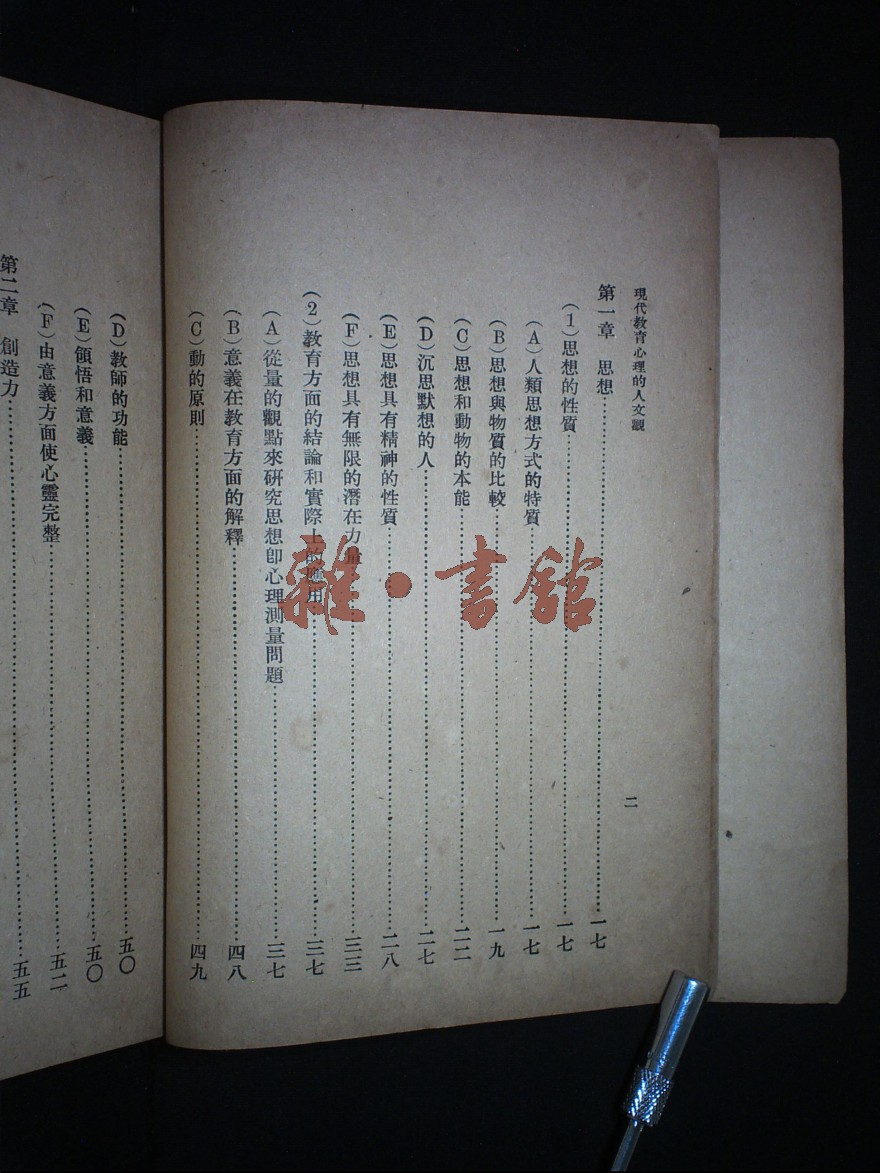 現代教育心理的人文觀
二
第一章 思想……一七
(1)思想的性質……一七
(A)人類思想方式的特質……一七
(B)思想與物質的比較……一九
(C)思想和動物的本能……二二
(D)沉思默想的人……二七
(E)思想具有精神的性質……二八
(F)思想具有無限的潛在力量……三三
(2)教育方面的結論和實際上的應用……三七
(A)從量的觀點來研究思想卽心理測量問題……三七
(B)意義在教育方面的解釋……四八
(C)動的原則……四九
(D)教師的功能……五〇
(E)領悟和意義……五〇
(F)由意義方面使心靈完整……五二
第二章 創造力……五五
雜·書館